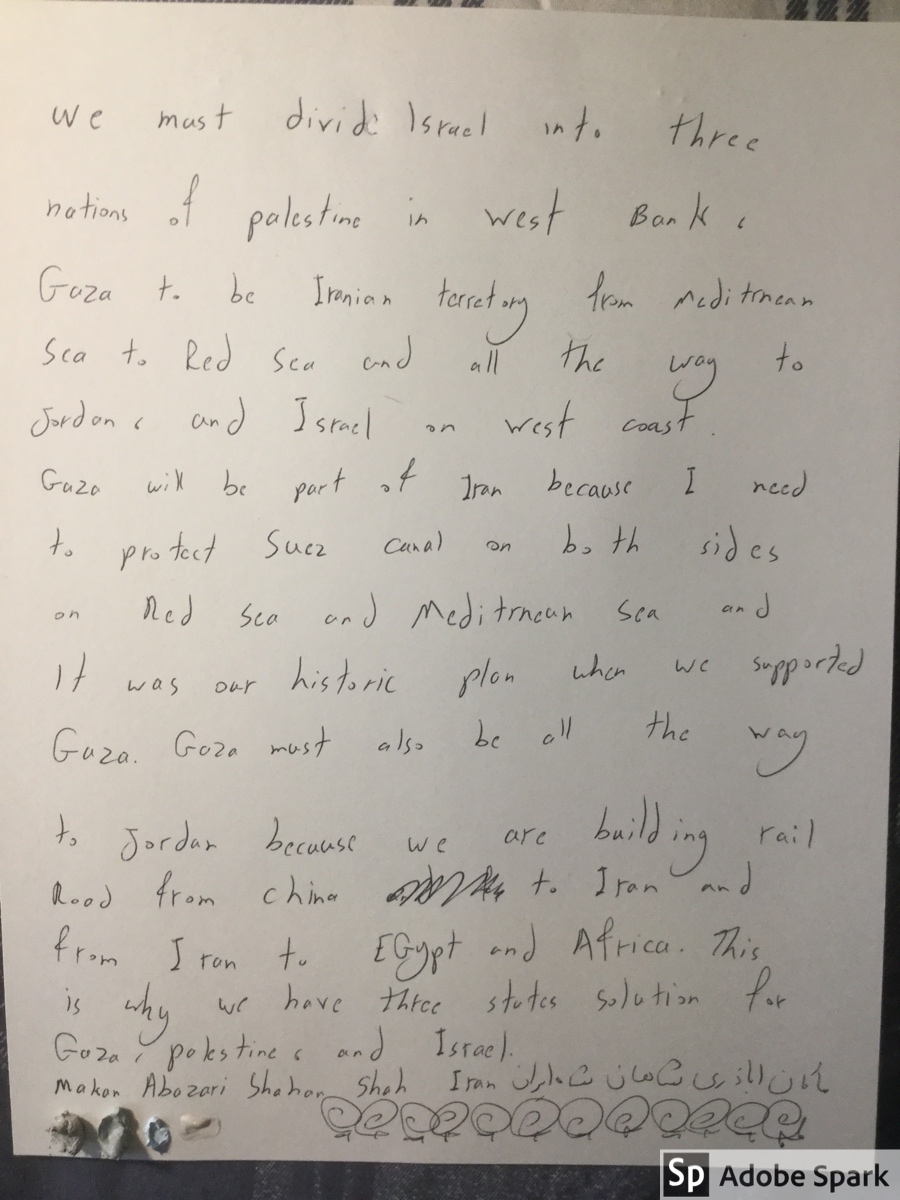 we must divide Israel into three
nations of palestine in west Bank ،
Gaza to be Iranian terretory from meditrnean
Sea to Red Sea and all the way to
Jordan ، and Israel on west coast.
Gaza will be part of Iran because I need
to protect Suez canal on both sides
on Red sea and Meditrnean sea and
It was our historic plan when we supported
Gaza. Gaza must also be all the way
to Jordan because we are building rail
Rood from china to Iran and
from Iran to EGypt and Africa. This
is why we have three states solution for
Gaza ، palestine ، and Israel.
Makan Abazari Shahan Shah Iran ماكان اباذری شاهان شاه ایران
Sp Adobe Spark